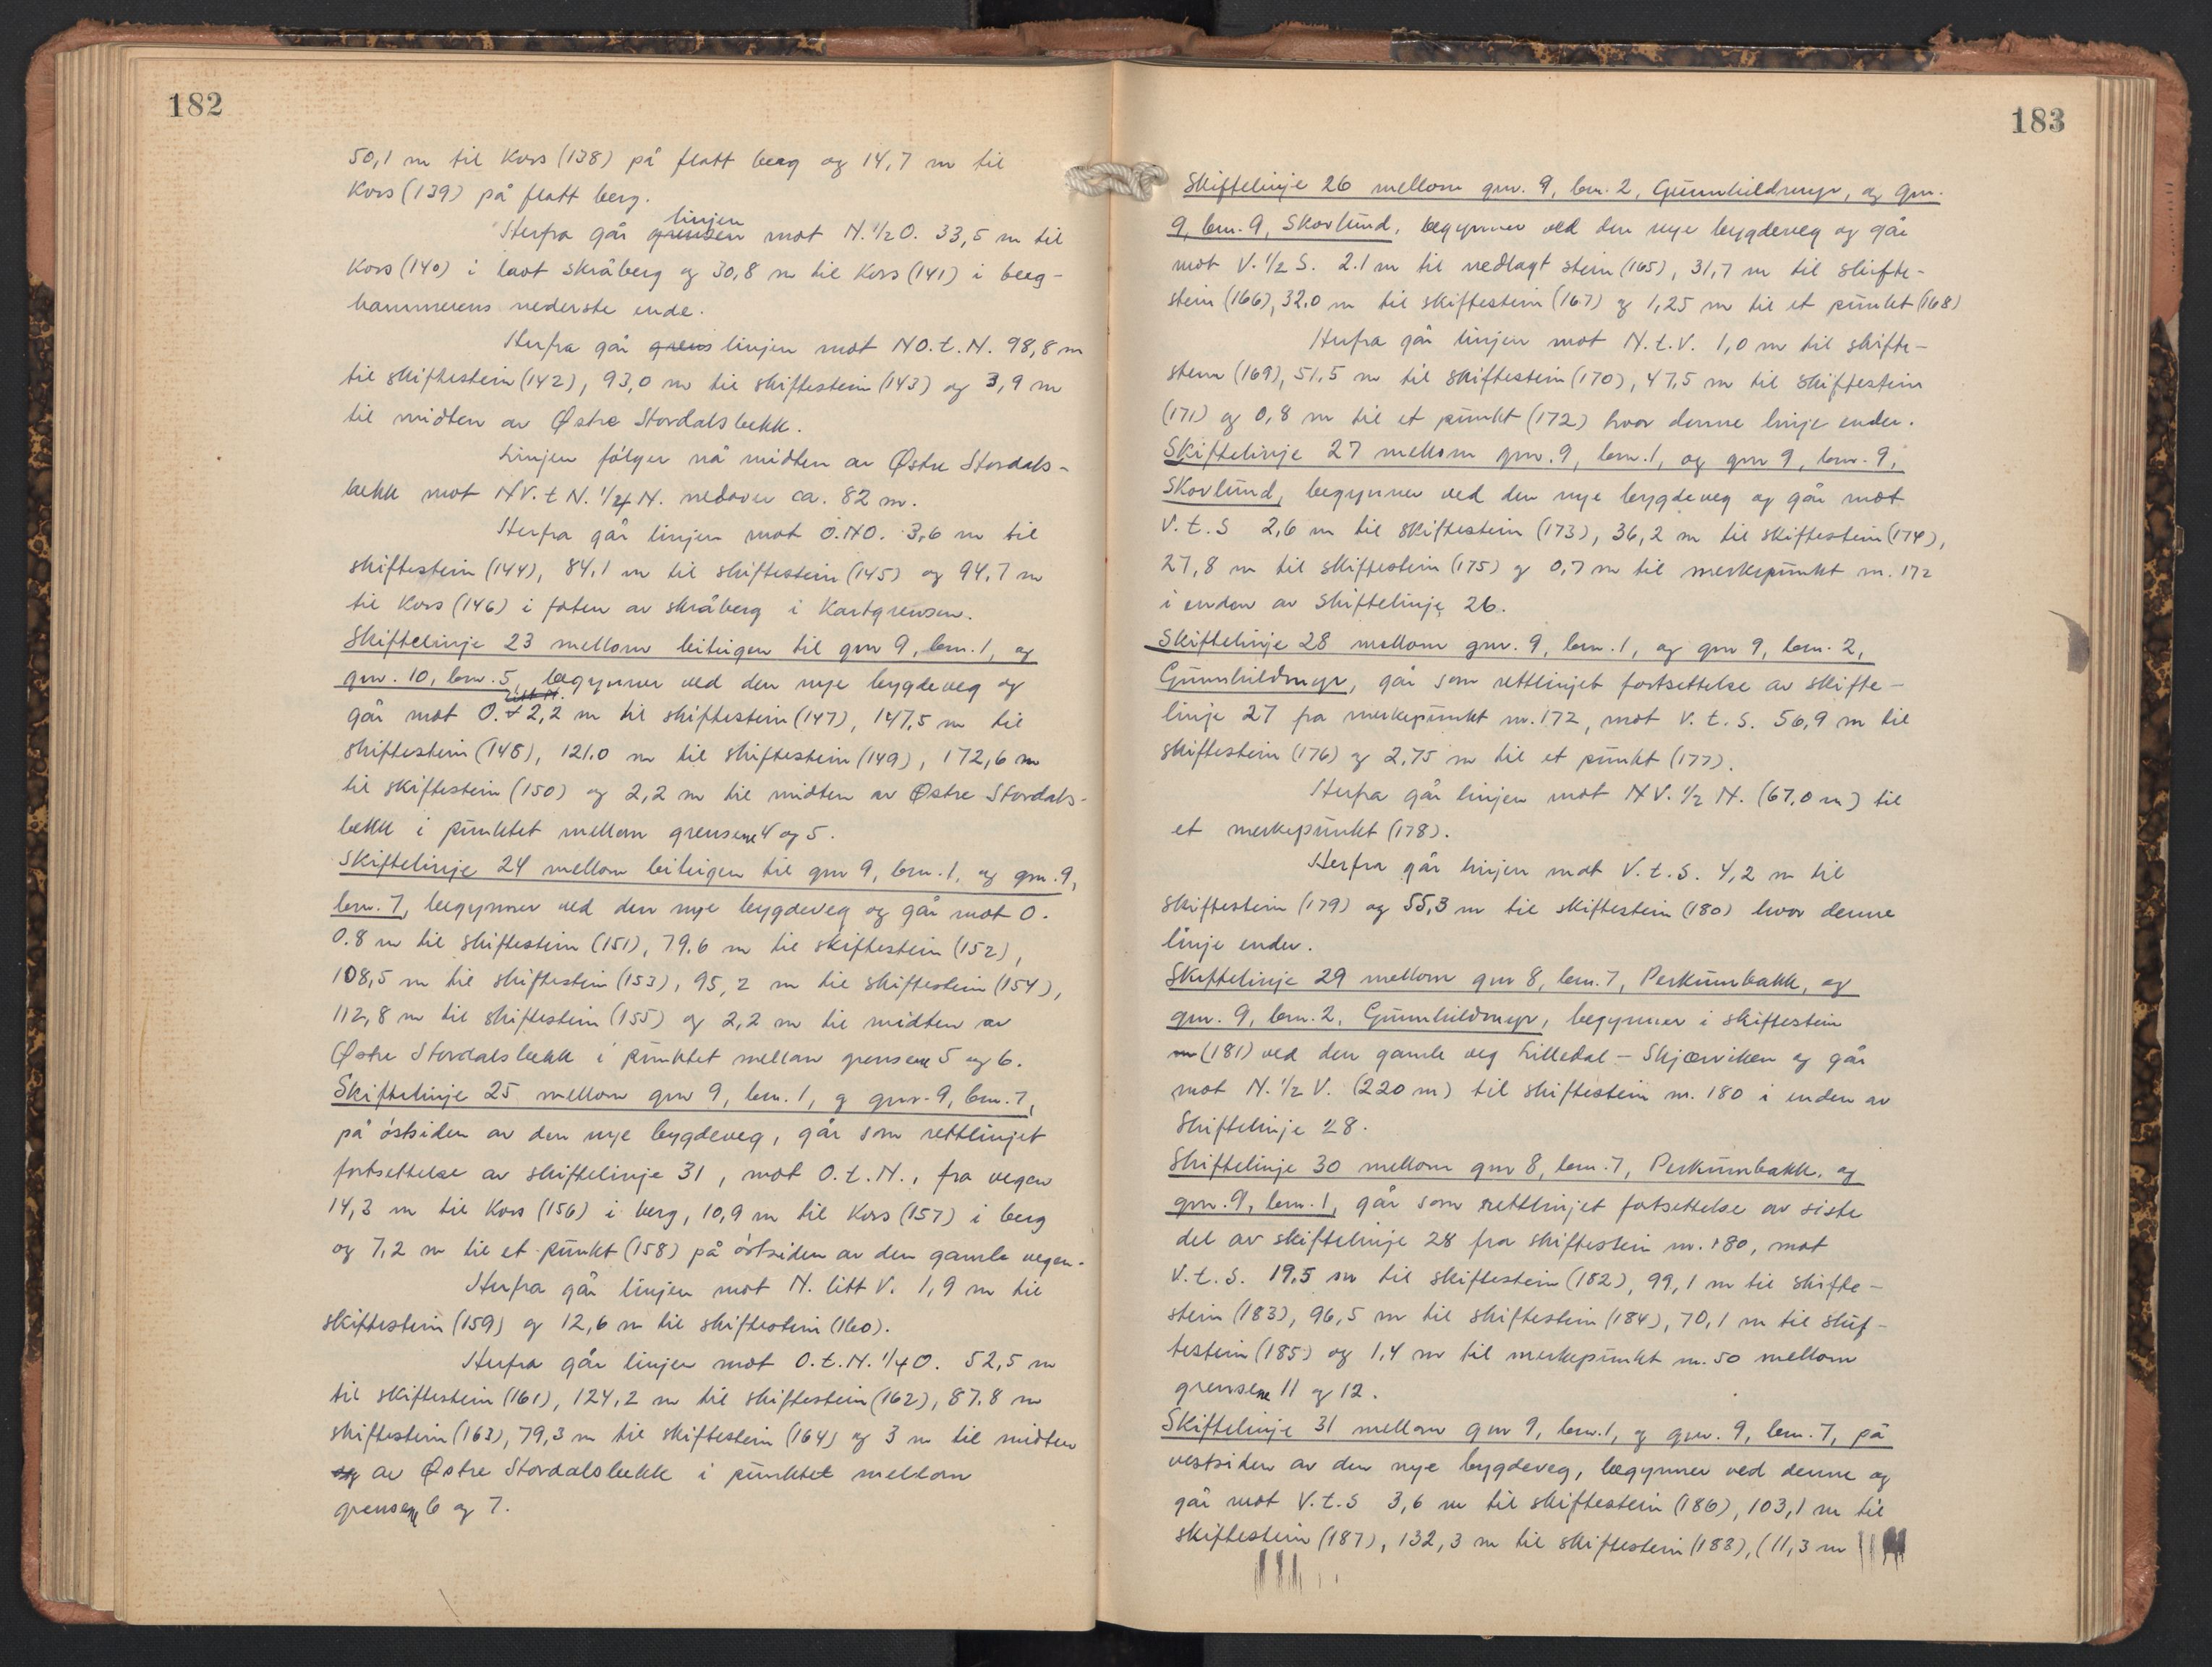 182
50,1 m til kors (138) på flatt berg og 14,7 m til
kors (139) på flatt berg.
linjen
Herfra går grensen mot N.½O. 33,5 m til
kors (140) i lavt skråberg og 30,8 m til kors (141) i berg-
hammerens nederste ende.
Herfra går grens linjen mot NO.t.N. 98,8 m
til skiftestein (142), 93,0 m til skiftestein (143) og 3,9 m
til midten av Østre Stordalsbekk.
Linjen følger nå midten av Østre Stordals-
bekk mot NV.t N. ¼ N. nedover ca. 82 m.
Herfra går linjen mot O.NO. 3,6 m til
skiftestein (144), 84,1 m til skiftestein (145) og 94,7 m
til kors (146) i foten av skråberg i kartgrensen.
Skiftelinje 23 mellom beitingen til gnr 9, bnr. 1, og
gnr. 10, bnr. 5, begynner ved den nye bygdeveg og
litt N.
går mot O. 2,2 m til skiftestein (147), 147,5 m til
skiftestein (148), 121,0 m til skiftestein (149), 172,6 m
til skiftestein (150) og 2,2 m til midten av Østre Stordals-
bekk i punktet mellom grensene 4 og 5.
Skiftelinje 24 mellom beitingen til gnr 9, bnr. 1, og gnr. 9,
bnr. 7, begynner ved den nye bygdeveg og går mot O.
0.8 m til skiftestein (151), 79,6 m til skiftestein (152),
108,5 m til skiftestein (153), 95,2 m til skiftestein (154),
112,8 m til skiftestein (155) og 2,2 m til midten av
Østre Stordalsbekk i punktet mellom grensene 5 og 6.
Skiftelinje 25 mellom gnr 9, bnr. 1, og gnr. 9, bnr. 7,
på østsiden av den nye bygdeveg, går som rettlinjet
fortsettelse av skiftelinje 31, mot O.t.N., fra vegen
14,3 m til kors (156) i berg, 10,9 m til kors (157) i berg
og 7,2 m til et punkt (158) på østsiden av den gamle vegen.
Herfra går linjen mot N. litt V. 1,9 m til
skiftestein (159) og 12,6 m til skiftestein (160).
Herfra går linjen mot O.t.N. ¼ O. 52,5 m
til skiftestein (161), 124,2 m til skiftestein (162), 87,8 m
skiftestein (163), 79,3 m til skiftestein (164) og 3 m til midten
og av Østre Stordalsbekk i punktet mellom
grensene 6 og 7.
183
Skiftelinje 26 mellom gnr. 9, bnr. 2, Gunnhildmyr, og gnr.
9, bnr. 9, Skovlund, begynner ved den nye bygdeveg og går
mot V. ½ S. 2.1 m til nedlagt stein (165), 31,7 m til skifte-
stein (166), 32,0 m til skiftestein (167) og 1,25 m til et punkt (168)
Herfra går linjen mot N.t.V. 1,0 m til skifte-
stein (169), 51,5 m til skiftestein (170), 47,5 m til skiftestein
(171) og 0,8 m til et punkt (172) hvor denne linje ender.
Skiftelinje 27 mellom gnr. 9, bnr. 1, og gnr 9, bnr. 9,
Skovlund, begynner ved den nye bygdeveg og går mot
V.t.S 2,6 m til skiftestein (173), 36,2 m til skiftestein (174),
27,8 m til skiftestein (175) og 0,7 m til merkepunkt nr. 172
i enden av skiftelinje 26.
Skiftelinje 28 mellom gnr. 9, bnr. 1, og gnr 9, bnr. 2,
Gunnhildmyr, går som rettlinjet fortsettelse av skifte-
linje 27 fra merkepunkt nr. 172, mot V.t.S. 56,9 m til
skiftestein (176) og 2,75 m til et punkt (177).
Herfra går linjen mot NV. ½ N. (67,0 m) til
et merkepunkt (178).
Herfra går linjen mot V.t.S. 4,2 m til
skiftestein (179) og 55,3 m til skiftestein (180) hvor denne
linje ender.
Skiftelinje 29 mellom gnr 8, bnr. 7, Perkumbakk, og
gnr. 9, bnr. 2, Gunnhildmyr, begynner i skiftestein
m (181) ved den gamle veg Lilledal - Skjærviken og går
mot N. ½ V. (220 m) til skiftestein nr. 180 i enden av
skiftelinje 28.
Skiftelinje 30 mellom gnr 8, bnr. 7, Perkumbakk, og
gnr. 9, bnr. 1, går som rettlinjet fortsettelse av siste
del av skiftelinje 28 fra skiftestein nr. 180, mot
V.t.S. 19,5 m til skiftestein (182), 99,1 m til skifte-
stein (183), 96,5 m til skiftestein (184), 70,1 m til skif-
testein (185) og 1,4 m til merkepunkt nr. 50 mellom
grensene 11 og 12.
Skiftelinje 31 mellom gnr 9, bnr. 1, og gnr. 9, bnr. 7, på
vestsiden av den nye bygdeveg, begynner ved denne og
går mot V.t.S 3,6 m til skiftestein (186), 103,1 m til
skiftestein (187), 132,3 m til skiftestein (188), (11,3 m